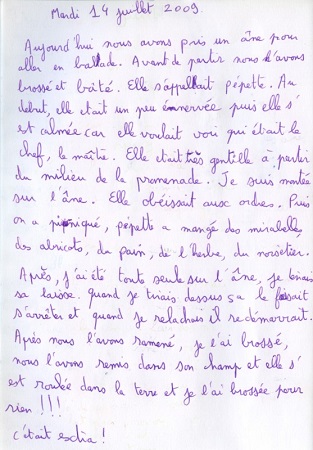 Mardi 14 juillet 2009.
Aujourd'hui nous avons pris un âne pour
aller en ballade. Avant de partir nous l'avons
brossé et boité. Elle s'appellait pépette. Au
début, elle était un peu énervée puis elle s'
est calmée car elle voulait voir qui était le
chef, le maître. Elle était très gentille à partir
du milieu de la promenade. Je suis montée
sur l'âne. Elle obéissait aux ordres. Puis
on a piqueniqué, pépette a mangé des mirabelles,
des abricots, du pain, de l'herbe, du noisetier.
Après, j'ai été toute seule sur l'âne, je tenais
sa laisse. quand je tirais dessus sa le faisait
s'arrêter et quand je relachais il redémarrait.
Après nous l'avons ramené, je l'ai brossé,
nous l'avons remis dans son champ et elle s'
est roulée dans la terre et je l'ai brossée pour
rien !!!
c'était extra !